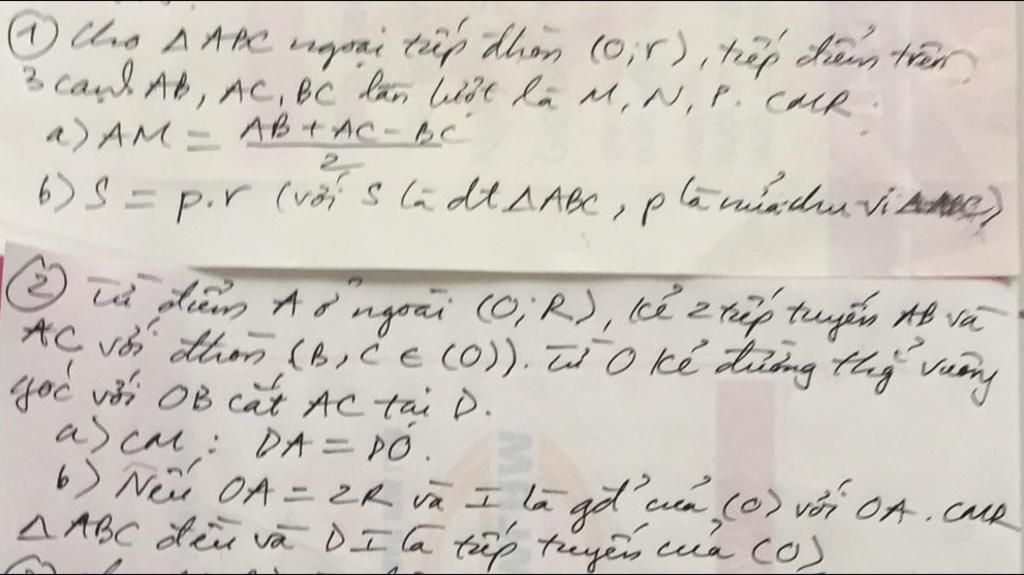 ① Cho △ABC ngoại tiếp đtròn (O;r), tiếp điểm trên
3 cạnh AB, AC, BC lần lượt là M, N, P. CMR:
a) AM = (AB + AC - BC)/2
b) S = p.r (với S là dt △ABC, p là nửa chu vi △ABC)
② Từ điểm A ở ngoài (O;R), kẻ 2 tiếp tuyến AB và
AC với đtròn (B, C ∈ (O)). Từ O kẻ đường thg̉ vuông
góc với OB cắt AC tại D.
a) CM: DA = DO.
b) Nếu OA = 2R và I là gđ̉ của (O) với OA. CMR
△ABC đều và DI là tiếp tuyến của (O)